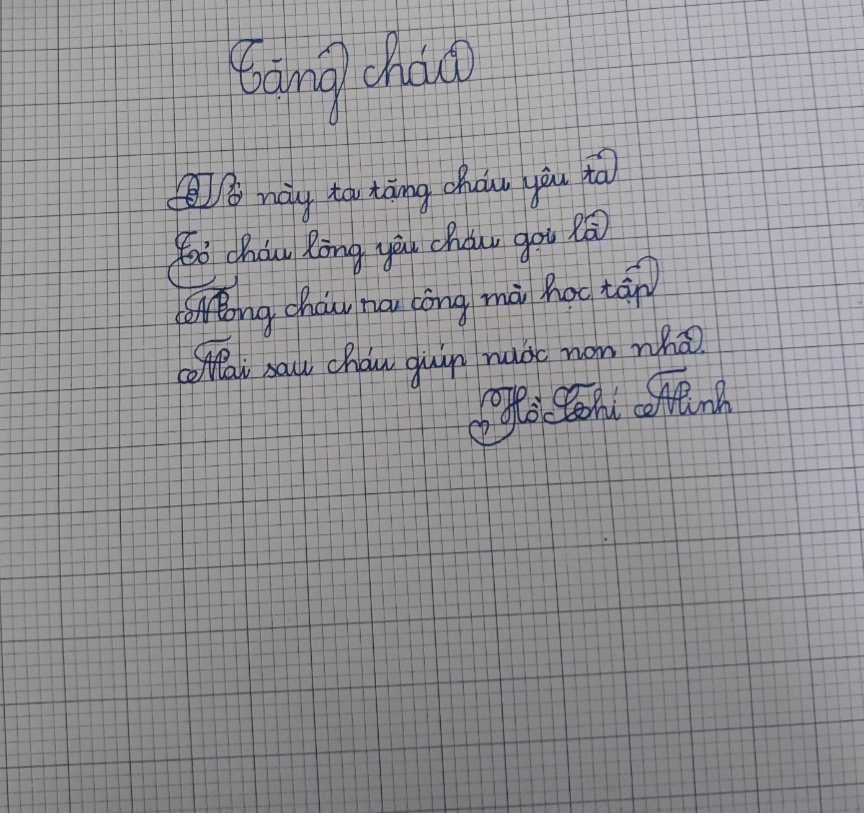 Tặng cháu
Vở này ta tặng cháu yêu ta
Tỏ cháu lòng yêu cháu gọi là
Mong cháu ra công mà học tập
Mai sau cháu giúp nước non nhà.
Hồ Chí Minh